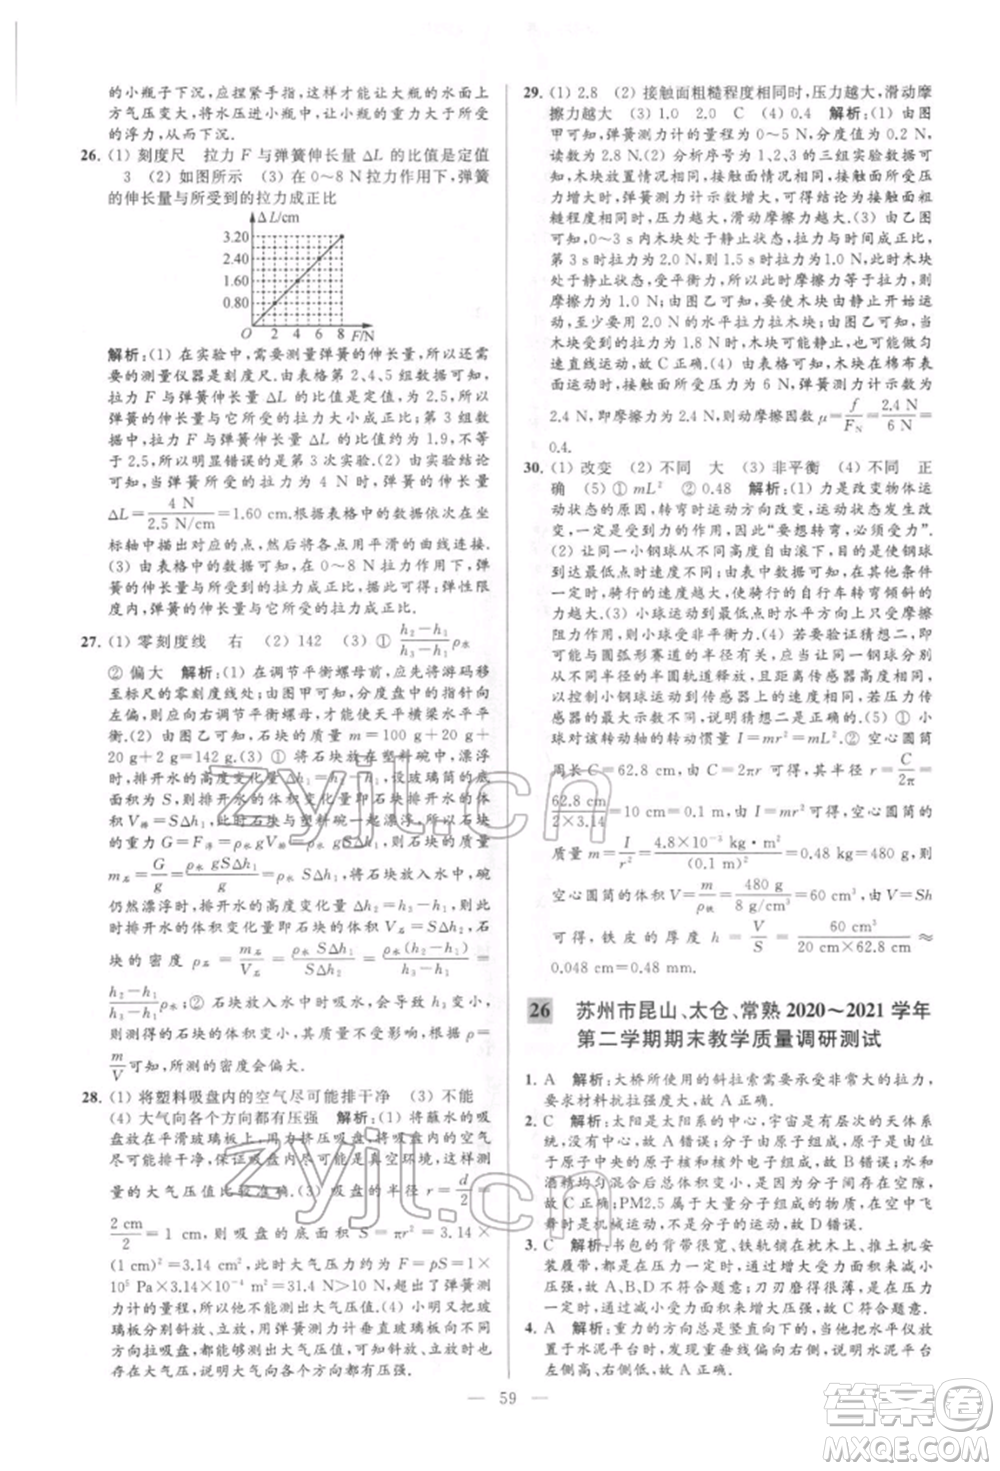 的小瓶子下沉,应捏紧手指,这样能让大瓶的水面上
方气压变大,将水压进小瓶中,小瓶的重力大于所受
的浮力,从而下沉.
26. (1) 刻度尺 拉力 F 与弹簧伸长量 ΔL 的比值是定值
3 (2) 如图所示 (3) 在 0~8 N拉力作用下,弹簧
的伸长量与所受到的拉力成正比
ΔL/cm
3.20
2.40
1.60
0.80
O 2 4 6 8 F/N
解析:(1) 在实验中,需要测量弹簧的伸长量,所以还需
要的测量仪器是刻度尺.由表格第 2、4、5 组数据可知,
拉力 F 与弹簧伸长量 ΔL 的比值是定值,为 2.5,所以
弹簧伸长量与它所受的拉力大小成正比;第 3 组数
据中,拉力 F 与弹簧伸长量 ΔL 的比值约为 1.9,不等
于 2.5,所以明显错误的是第 3 次实验.(2) 由实验结论
可知,当弹簧所受的拉力为 4 N 时,弹簧的伸长量
ΔL=4 N/2.5 N/cm=1.60 cm.根据表格中的数据依次在坐
标轴中描出对应的点,然后用平滑的曲线连接.
(3) 由表格中的数据可知,在拉力作用下,弹性限
度内,弹簧的伸长量与所受到的拉力成正比.
27. (1) 零刻度线 右 (2) 142 (3) ① (h₂−h₁)/(h₃−h₁) ρ水
② 偏大 解析:(1) 在调节平衡螺母前,应先将游码移
至标尺的零刻度线处;由图甲可知,分度盘中的指针向
左偏,则应向右调节平衡螺母,才能使天平横梁水平平
衡.(2) 由图乙可知,石块的质量 m = 100 g+20 g+
20 g+2 g=142 g.(3) ① 将石块放在塑料碗中,漂浮
时,排开水的高度变化量 Δh₁=h₂−h₁,设玻璃筒的底
面积为 S,则排开水的体积变化量即石块排开水的体
积 V排=SΔh₁,由于石块与塑料碗一起漂浮,所以石块
的重力 G=F浮=ρ水 gV排=ρ水 gSΔh₁,石块的质量
m石=G/g=ρ水 gSΔh₁/g=ρ水 SΔh₁;将石块放入水中,碗
仍然漂浮时,排开水的高度变化量 Δh₂=h₃−h₁,则排
开水的体积变化量即石块的体积 V石=SΔh₂;所以石
块的密度 ρ石=m石/V石=ρ水 SΔh₁/SΔh₂=ρ水 S(h₂−h₁)/S(h₃−h₁)=
(h₂−h₁)/(h₃−h₁) ρ水. ② 石块放入水中时吸水,会导致 h₃ 变小,
所以测得的石块的体积变小,石块的质量不变,由 ρ=
m/V 可知,测得的密度会偏大.
28. (1) 将塑料吸盘内的空气尽可能排干净 (3) 不能
(4) 大气向各个方向都有压强 解析:(1) 将蘸水的吸
盘放在平滑玻璃板上,用力挤压吸盘,使吸盘内的空气
尽可能排干净,保证吸盘内尽可能是真空环境,这样测
量的大气压值比较准确.(3) 吸盘的半径 r=d/2=
2 cm/2=1 cm,吸盘的底面积 S=πr²=3.14×
(1 cm)²=3.14 cm²,大气压力 F=pS=1×
10⁵ Pa×3.14×10⁻⁴ m²=31.4 N>10 N,超过了弹簧测
力计的量程,所以不能测出大气压值.(4) 小明又把玻
璃板分别斜放、立放,都能测出大气压值,可知斜放、立
放时玻璃板周围依然存在大气压强,说明各个方向都
存在大气压,说明大气向各个方向都有压强.
29. (1) 2.8 (2) 接触面粗糙程度相同时,压力越大,滑动摩
擦力越大 (3) 1.0 2.0 C (4) 0.4 解析:(1) 由图
甲可知,弹簧测力计的量程为 0~5 N,分度值为 0.2 N,
读数为 2.8 N.(2) 分析序号为 1、2、3 的三组实验数据可
知,木块放在木板上,接触面粗糙程度相同,接触面粗
糙程度相同时,压力越大,滑动摩擦力越大.(3) 由乙图
可知,0~3 s 内木块处于静止状态,受平衡力,摩擦力与
拉力大小相等,则 1.5 s 时拉力为 1.0 N,此时木块处于
静止状态,受平衡力,则摩擦力大小等于拉力,即摩擦力
大小为 1.0 N;由图乙可知,要使木块由静止开始运
动,至少要用 2.0 N 的水平拉力拉木块;由图乙可知,
木块匀速运动时的拉力为 1.8 N,此时木块受平衡
力,所以摩擦力大小等于拉力大小,即摩擦力大小为
1.8 N,故 C 正确.(4) 由表格可知,木块在棉布表
面运动时,压力大小为 6 N,弹簧测力计示数为
2.4 N,即摩擦力为 2.4 N,则动摩擦因数 μ=f/FN=2.4 N/6 N=
0.4.
30. (1) 改变 (2) 不同 大 (3) 非平衡 (4) 不同 正
确 (5) ① mL² ② 0.48 解析:(1) 力是改变物体运
动状态的原因,转弯时运动方向改变,运动状态发生改
变,一定是受到力的作用,因此“要想转弯,必须受力”.
(2) 让同一小钢球从不同高度自由滚下,可使钢球
到达最低点时速度不同,高度越大,速度越大;由图可
知,骑行的速度越大,使骑行的自行车转弯倾斜的
力就越大.(3) 小球运动到最低点时水平方向上只受摩擦
阻力作用,所以受非平衡力.(4) 要探究向心力大小
与圆弧形赛道的半径有关,应让小球分别通过不同
半径的半圆轨道压到传感器上,同时改变高度,
控制小钢球运动到传感器上的速度相同,若压力传
感器的示数不同,说明猜想二是正确的.(5) ① 小
球对该转动轴的转动惯量 I=mr²=mL². ② 空心圆筒
周长 C=62.8 cm,由 C=2πr 可得,半径 r=C/2π=
62.8 cm/2×3.14=10 cm=0.1 m,由 I=mr² 可得,空心圆筒的
质量 m=I/r²=4.8×10⁻³ kg·m²/(0.1 m)²=0.48 kg=480 g,则
空心圆筒的体积 V=m/ρ铁=480 g/8 g/cm³=60 cm³,由 V=Sh
可得,铁皮的厚度 h=V/S=60 cm³/20 cm×62.8 cm≈
0.048 cm=0.48 mm.
26 苏州市昆山、太仓、常熟 2020~2021 学年
第二学期期末教学质量调研测试
1. A 解析:大桥所使用的斜拉索需要承受非常大的拉力,
要求材料抗拉强度大,故 A 正确.
2. C 解析:太阳是太阳系的中心,宇宙是有层次的天体系
统,没有中心,故 A 错误;分子由原子组成,质子和中子位
于原子中央的原子核和核外电子构成原子,故 B 错误;
酒精均匀混合后总体积变小,说明分子之间存在空隙,
故 C 正确;PM2.5 属于大量分子组成的物体,在空中飞
舞时是机械运动,不是分子的运动,故 D 错误.
3. C 解析:书包的背带很宽、铁轨铺在枕木上、推土机安
装履带,都是在压力一定时,通过增大受力面积来减小
压强,故 A、B、D 不符合题意;刀刃磨得很薄,是在压力
一定时,通过减小受力面积来增大压强,故 C 符合题意.
4. A 解析:重力的方向总是竖直向下的,由水平仪放
置于水泥平台时,重垂线偏向右侧可知,水泥平台
左侧高、右侧低,故 A 正确.
59
zyjl.cn
zyjl.cn
答案圈
MXQE.COM